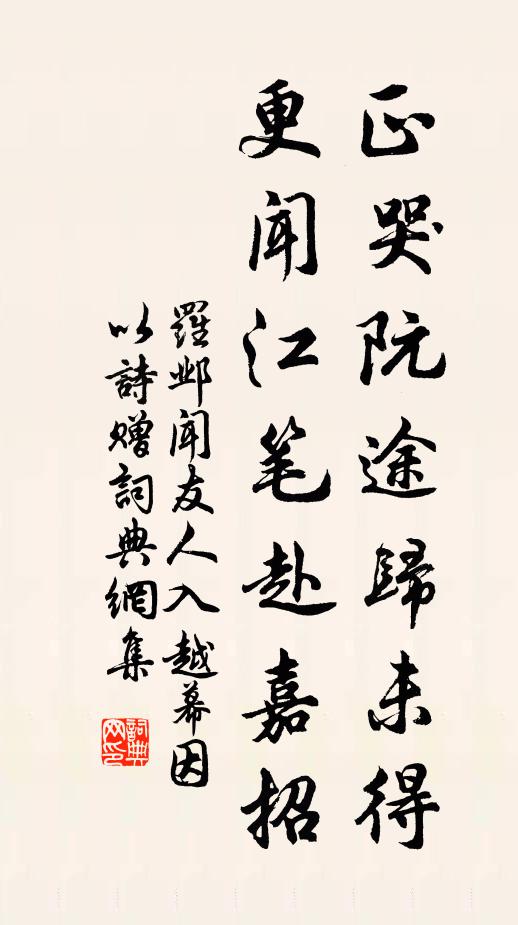 正哭阮途歸未得
更闻江笔赴嘉招
羅邺闻友人入越幕因
以詩贈詞典網集
詞典
网印